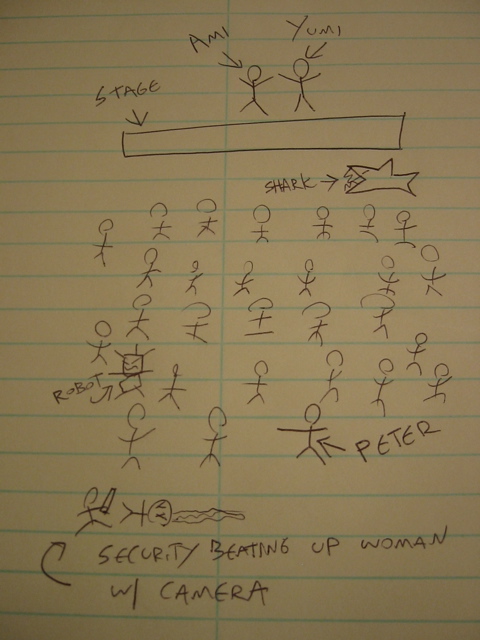 AMI
YUMI
STAGE
SHARK
ROBOT
PETER
SECURITY BEATING UP WOMAN
W/ CAMERA